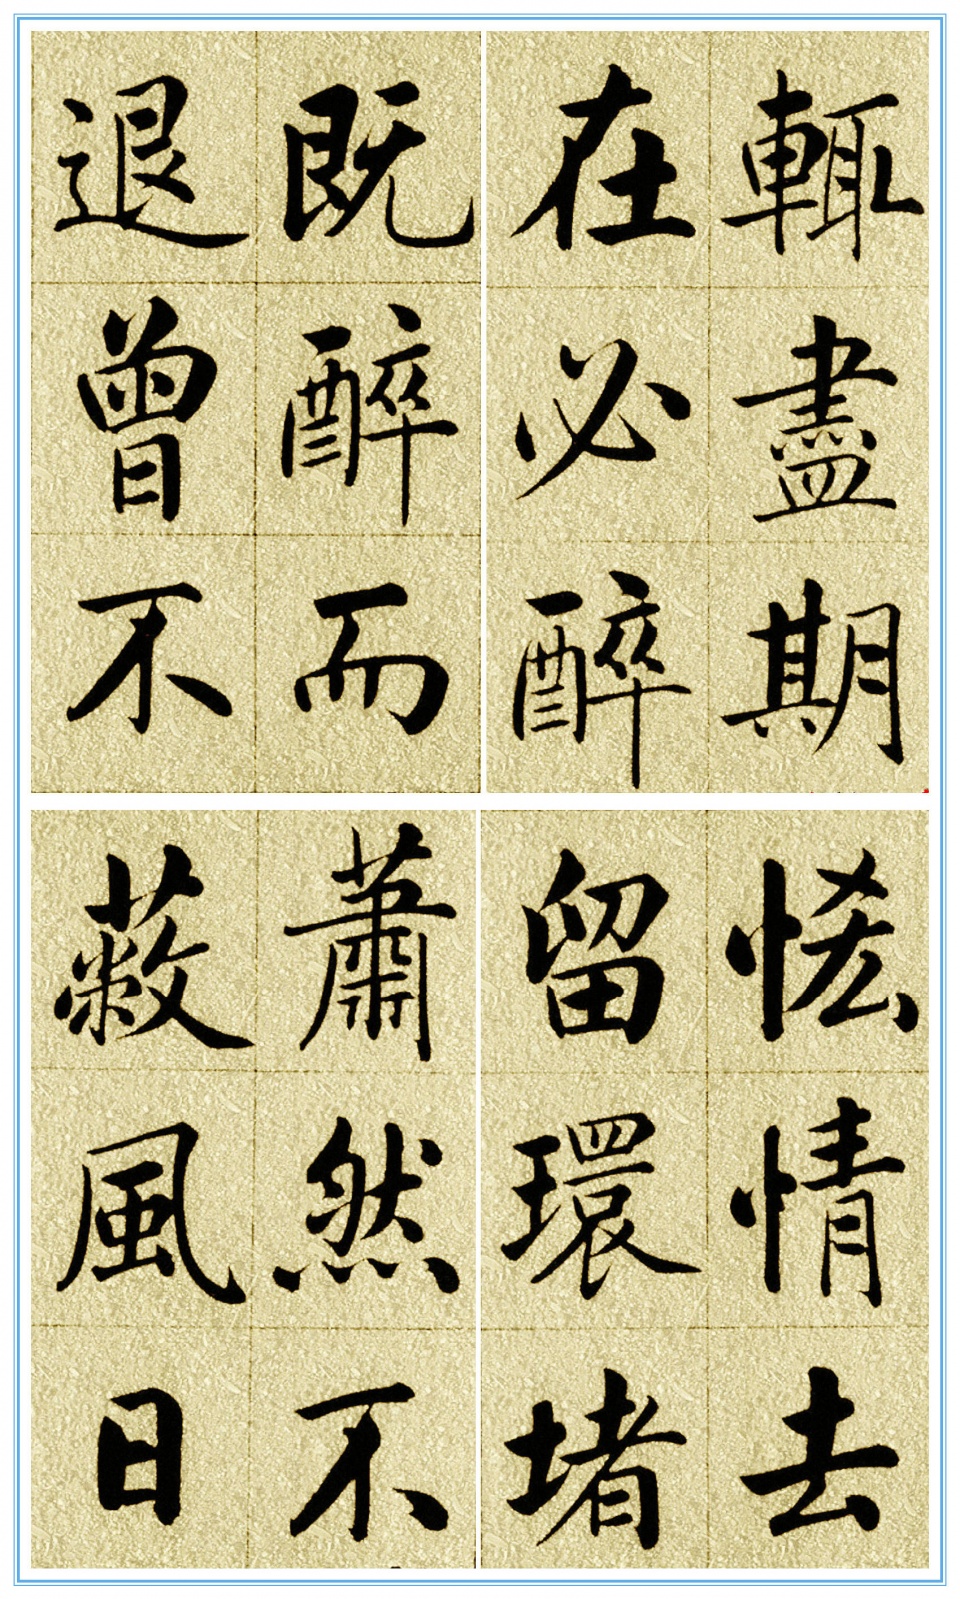 輒盡期
在必醉
既醉而
退曾不
恡情去
留環堵
蕭然不
蔽風日